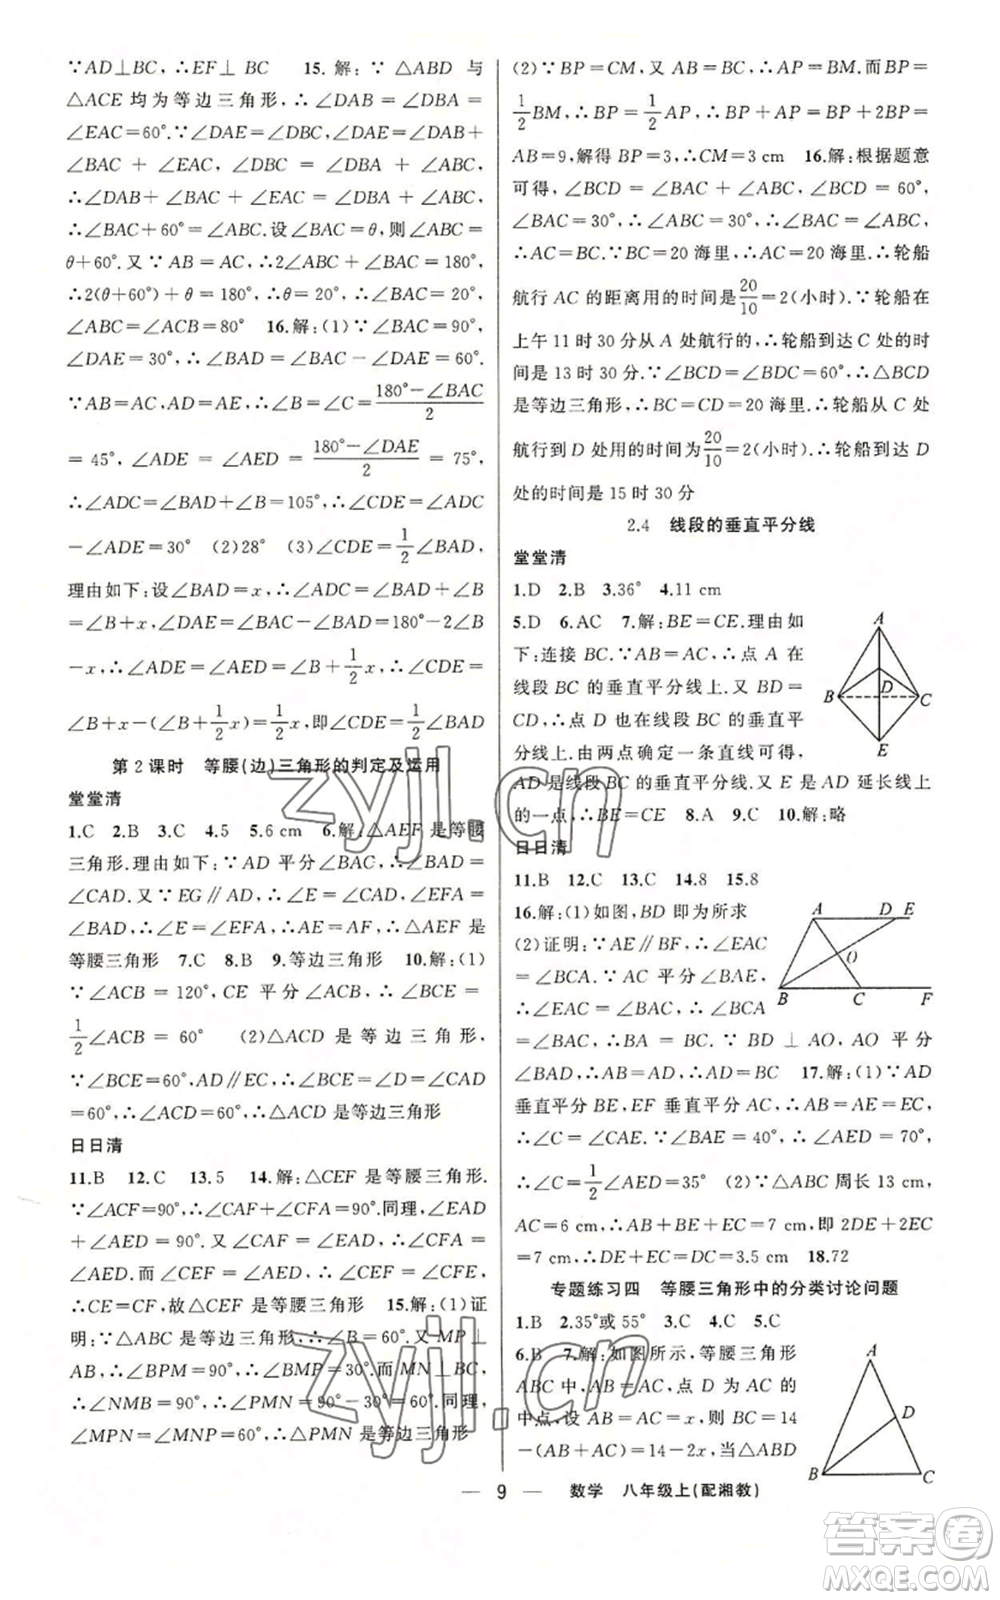 ∵AD⊥BC,∴EF⊥ BC 15.解:∵△ABD 与
△ACE 均为等边三角形,∴∠DAB=∠DBA=
∠EAC=60°.∵∠DAE=∠DBC,∠DAE=∠DAB+
∠BAC + ∠EAC, ∠DBC = ∠DBA + ∠ABC,
∴∠DAB + ∠BAC + ∠EAC = ∠DBA + ∠ABC,
∴∠BAC+60°=∠ABC.设∠BAC=θ,则∠ABC=
θ+60°.又∵AB=AC,∴2∠ABC+∠BAC=180°,
∴2(θ+60°)+θ=180°,∴θ=20°,∴∠BAC=20°,
∠ABC=∠ACB=80° 16.解:(1)∵∠BAC=90°,
∠DAE=30°,∴∠BAD=∠BAC−∠DAE=60°.
∵AB=AC,AD=AE,∴∠B=∠C=(180°−∠BAC)/2
=45°,∠ADE=∠AED=(180°−∠DAE)/2=75°,
∴∠ADC=∠BAD+∠B=105°,∴∠CDE=∠ADC
−∠ADE=30° (2)28° (3)∠CDE=1/2∠BAD
理由如下:设∠BAD=x,∴∠ADC=∠BAD+∠B
=∠B+x,∠DAE=∠BAC−∠BAD=180°−2∠B
−x,∴∠ADE=∠AED=∠B+1/2x,∴∠CDE=
∠B+x−(∠B+1/2x)=1/2x,即∠CDE=1/2∠BAD
第2课时 等腰(边)三角形的判定及运用
堂堂清
1.C 2.B 3.C 4.5 5.6 cm 6.解:△AEF是等腰
三角形.理由如下:∵AD 平分∠BAC,∴∠BAD=
∠CAD.又∵EG∥AD,∴∠E=∠CAD,∠EFA=
∠BAD,∴∠E=∠EFA,∴AE=AF,∴△AEF 是
等腰三角形 7.C 8.B 9.等边三角形 10.解:(1)
∵∠ACB = 120°,CE 平分∠ACB,∴∠BCE =
1/2∠ACB = 60° (2)△ACD 是等边三角形,
∵∠BCE=60°,AD∥EC,∴∠BCE=∠D=∠CAD
=60°,∴∠ACD=60°,∴△ACD 是等边三角形
日日清
11.B 12.C 13.5 14.解:△CEF 是等腰三角形.
∵∠ACF=90°,∴∠CAF+∠CFA=90°.同理,∠EAD
+∠AED=90°.又∠CAF=∠EAD,∴∠CFA=
∠AED.而∠CEF=∠AED,∴∠CEF=∠CFE,
∴CE=CF,故△CEF 是等腰三角形 15.解:(1)证
明:∵△ABC 是等边三角形,∴∠B=60°.又 MP⊥
AB,∴∠BPM=90°,∴∠BMP=30°.而 MN⊥BC,
∴∠NMB=90°,∴∠PMN=90°−30°=60°.同理,
∠MPN=∠MNP=60°,∴△PMN 是等边三角形
(2)∵BP=CM,又 AB=BC,∴AP=BM.而BP=
1/2BM,∴BP=1/2AP,∴AB=AP+BP=2BP+BP,
AB=9,解得 BP=3,∴CM=3 cm 16.解:根据题意
可得,∠BCD=∠BAC+∠ABC,∠BCD=60°,
∠BAC=30°,∴∠ABC=30°,∴∠BAC=∠ABC,
∴AC=BC.∵BC=20 海里,∴AC=20 海里,∴轮船
航行 AC 的距离用的时间是20/10=2(小时).∵轮船在
上午 11 时 30 分从 A 处航行的,∴轮船到达 C 处的时
间是 13 时 30 分.∵∠BCD=∠BDC=60°,∴△BCD
是等边三角形,∴BC=CD=20 海里.∴轮船从 C 处
航行到 D 处用的时间是20/10=2(小时).∴轮船到达 D
处的时间是 15 时 30 分
2.4 线段的垂直平分线
堂堂清
1.D 2.B 3.36° 4.11 cm
5.D 6.AC 7.解:BE=CE.理由如
下:连接 BC.∵AB=AC,∴点 A 在
线段 BC 的垂直平分线上.又 BD=
CD,∴点 D 也在线段 BC 的垂直平
分线上.由两点确定一条直线可得,
AD 是线段 BC 的垂直平分线.又 E 是 AD 延长线上
的一点,∴BE=CE 8.A 9.C 10.解:略
A
B
D
C
E
日日清
11.B 12.C 13.C 14.8 15.8
16.解:(1)如图,BD 即为所求
(2)证明:∵AE∥BF,∴∠EAC
=∠BCA.∵AC 平分∠BAE,
∴∠EAC=∠BAC,∴∠BCA
=∠BAC,∴BA=BC.∵BD⊥AO,AO 平分
∠BAD,∴AB=AD,∴AD=BC 17.解:(1)∵AD
垂直平分 BE,EF 垂直平分 AC,∴AB=AE=EC,
∴∠C=∠CAE.∵∠BAE=40°,∴∠AED=70°,
∴∠C=1/2∠AED=35° (2)∵△ABC 周长 13 cm,
AC=6 cm,∴AB+BC=7 cm,即 2DE+2EC
=7 cm,∴DE+EC=DC=3.5 cm 18.72
A
D
E
O
B
C
F
专题练习四 等腰三角形中的分类讨论问题
1.B 2.35°或 55° 3.C 4.C 5.C
6.B 7.解:如图所示,等腰三角形
ABC 中,AB=AC,点 D 为 AC 的
中点,设 AB=AC=x,则 BC=14
−(AB+AC)=14−2x,当△ABD
A
D
B
C
— 9 — 数学 八年级上(配湘教)
zyjl.cn
zyjl.cn
答案圈
MXQE.COM